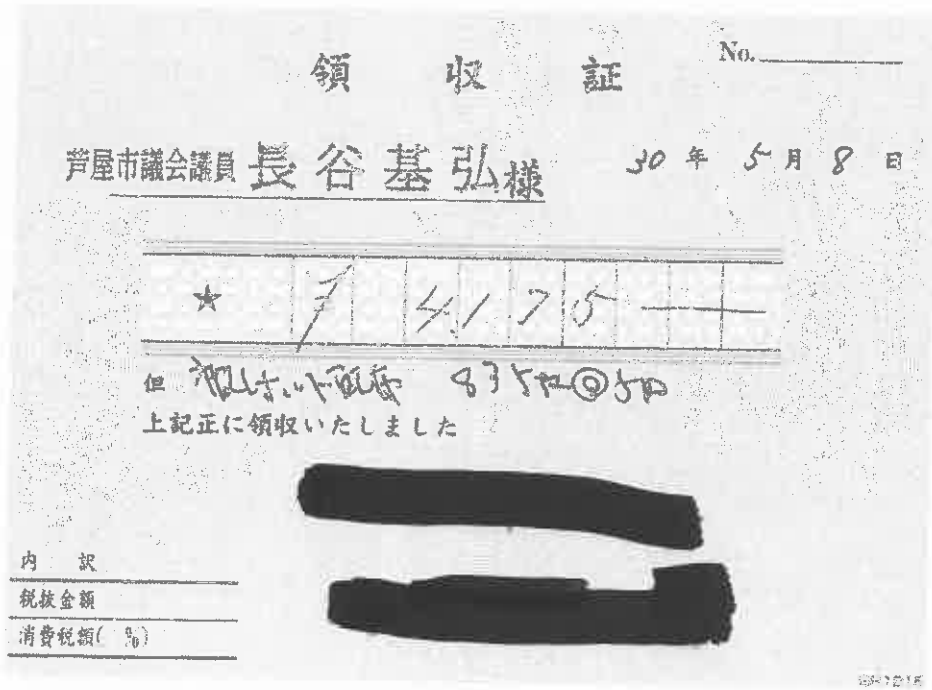 領収証
No.
芦屋市議会議員 長谷基弘様
30年5月8日
★ ¥ 4,175—
但 835 @5
上記正に領収いたしました
内訳
税抜金額
消費税額( %)